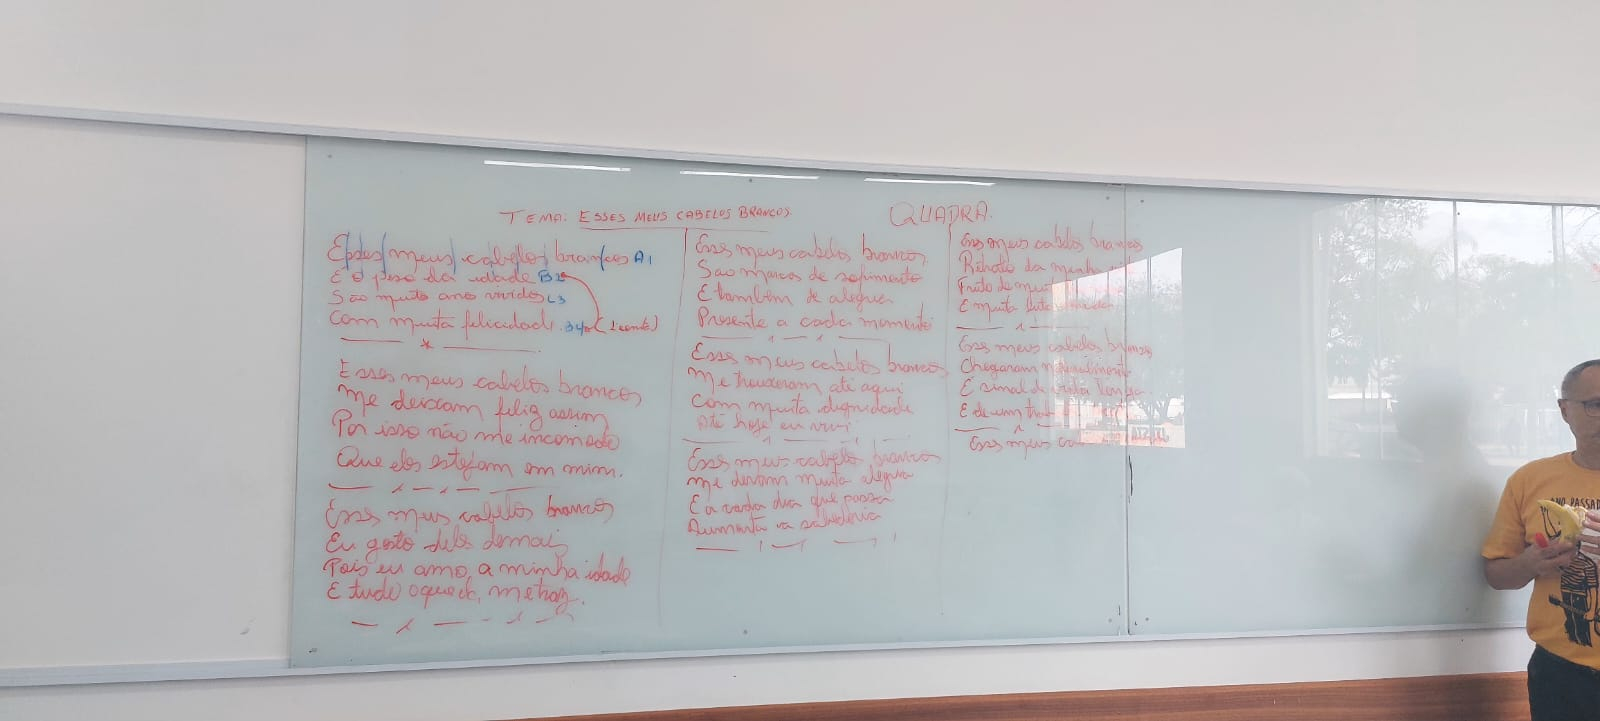 TEMA: ESSES MEUS CABELOS BRANCOS.
QUADRA.
Esses/meus/cabelos/bran/cos A1
É o peso da idade B2
São muito ano vividos C3
Com muita felicidade.
Esses meus cabelos brancos
Me deixam feliz assim
Por isso não me incomodo
Que eles estejam em mim.
Esses meus cabelos brancos
Eu gosto deles demais
Pois eu amo a minha idade
E tudo o que ela me traz.
Esses meus cabelos brancos
São marca de sofrimento
E também de alegria
Presente a cada momento
Esses meus cabelos brancos
Me trouxeram até aqui
Com muita dignidade
Até hoje eu vivi
Esses meus cabelos brancos
Me deram muita alegria
E a cada dia que passa
Aumenta a sabedoria
Esses meus cabelos brancos
Retrato da minha
Fruto de muit
E muita luta
Esses meus cabelos brancos
Chegaram naturalmente
É sinal de vida longa
E de um
Esses meus
ANO PASSAD